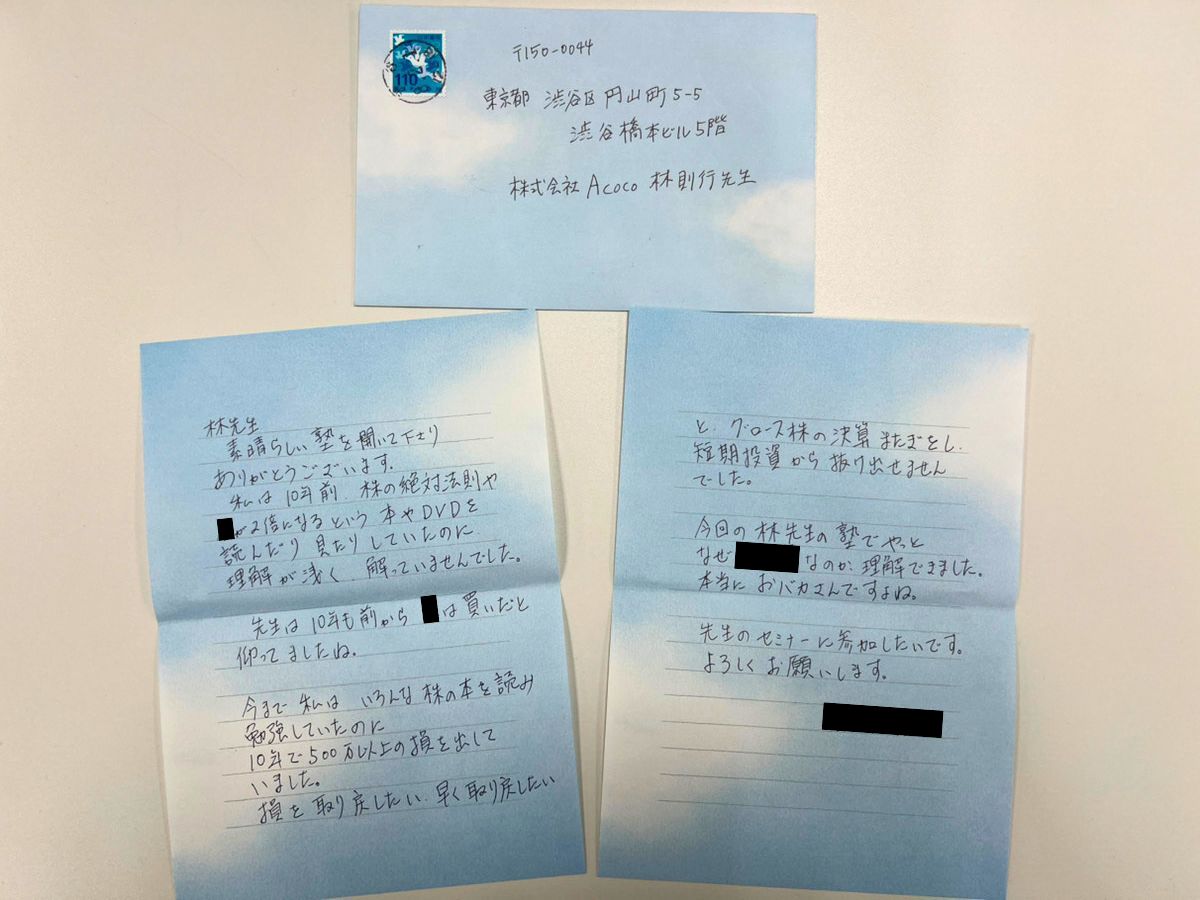 110
〒150-0044
東京都 渋谷区円山町5-5
渋谷橋本ビル5階
株式会社Acoco 林則行先生
林先生
素晴らしい塾を開いて下さり
ありがとうございます。
私は10年前、株の絶対法則や
が2倍になるという本やDVDを
読んだり見たりしていたのに
理解が浅く、解っていませんでした。
先生は10年も前から は買いだと
仰ってましたね。
今まで私は いろんな株の本を読み
勉強していたのに
10年で500万以上の損を出して
いました。
損を取り戻したい、早く取り戻したい
と、グロース株の決算またぎをし、
短期投資から抜け出せません
でした。
今回の林先生の塾でやっと
なぜ なのか、理解できました。
本当におバカさんですよね。
先生のセミナーに参加したいです。
よろしくお願いします。